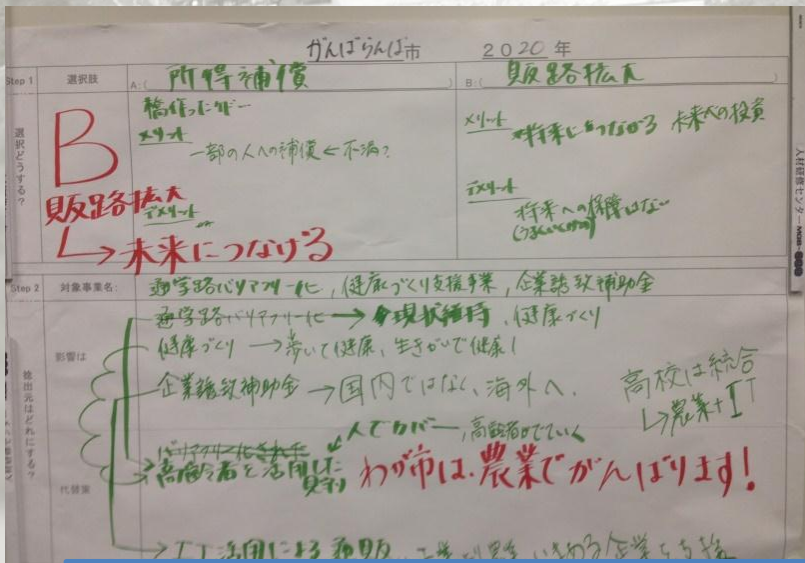 がんばらんば市 2020年
Step 1 選択肢 A:( 所得補償 ) B:( 販路拡大 )
選択どうする?
B
販路拡大
→未来につなげる
橋作った
メリット
一部の人への補償←不満?
デメリット
メリット
将来につながる 未来への投資
デメリット
将来への保障はない
人材研修センター
Step 2 対象事業名: 通学路バリアフリー化, 健康づくり支援事業, 企業誘致補助金
捻出元はどれにする?
影響は
通学路バリアフリー化→現状維持, 健康づくり
健康づくり→歩いて健康, 生きがいで健康!
企業誘致補助金→国内ではなく, 海外へ.
高校は統合
→農業+IT
代替案
バリアフリー化された
人でカバー, 高齢者がでていく
→高齢者を活用した見守り
わが市は、農業でがんばります!
→IT活用による通販
企業を支援